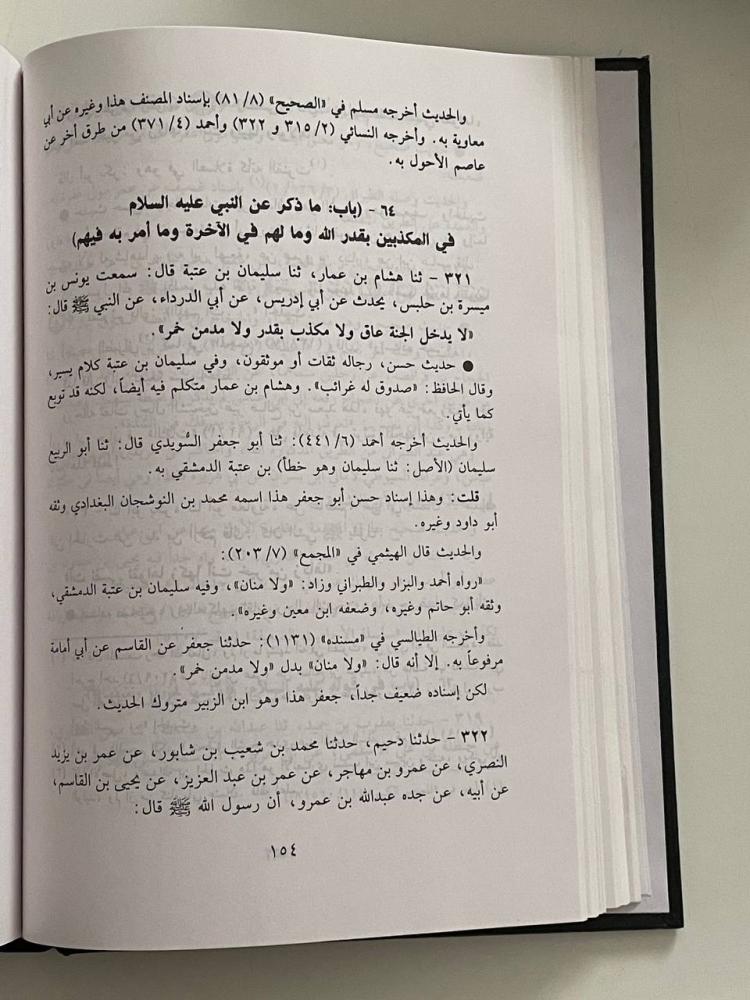 والحديث أخرجه مسلم في «الصحيح» (٨١/٨) بإسناد المصنف هذا وغيره عن أبي
معاوية به. وأخرجه النسائي (٣١٥/٢ و ٣٢٢) وأحمد (٣٧١/٤) من طرق أخر عن
عاصم الأحول به.
٦٤ - (باب: ما ذكر عن النبي عليه السلام
في المكذبين بقدر الله وما لهم في الآخرة وما أمر به فيهم)
٣٢١ - ثنا هشام بن عمار، ثنا سليمان بن عتبة قال: سمعت يونس بن
ميسرة بن حلبس، يحدث عن أبي إدريس، عن أبي الدرداء، عن النبي ﷺ قال:
«لا يدخل الجنة عاق ولا مكذب بقدر ولا مدمن خمر».
● حديث حسن، رجاله ثقات أو موثقون، وفي سليمان بن عتبة كلام يسير،
وقال الحافظ: «صدوق له غرائب». وهشام بن عمار متكلم فيه أيضاً، لكنه قد توبع
كما يأتي.
والحديث أخرجه أحمد (٤٤١/٦): ثنا أبو جعفر السُّويدي قال: ثنا أبو الربيع
سليمان (الأصل: ثنا سليمان وهو خطأ) بن عتبة الدمشقي به.
قلت: وهذا إسناد حسن أبو جعفر هذا اسمه محمد بن النوشجان البغدادي وثقه
أبو داود وغيره.
والحديث قال الهيثمي في «المجمع» (٢٠٣/٧):
«رواه أحمد والبزار والطبراني وزاد: «ولا منان»، وفيه سليمان بن عتبة الدمشقي،
وثقه أبو حاتم وغيره، وضعفه ابن معين وغيره».
وأخرجه الطيالسي في «مسنده» (١١٣١): حدثنا جعفر عن القاسم عن أبي أمامة
مرفوعاً به. إلا أنه قال: «ولا منان» بدل «ولا مدمن خمر».
لكن إسناده ضعيف جداً، جعفر هذا وهو ابن الزبير متروك الحديث.
٣٢٢ - حدثنا دحيم، حدثنا محمد بن شعيب بن شابور، عن عمر بن يزيد
النصري، عن عمرو بن مهاجر، عن عمر بن عبد العزيز، عن يحيى بن القاسم،
عن أبيه، عن جده عبدالله بن عمرو، أن رسول الله ﷺ قال:
١٥٤